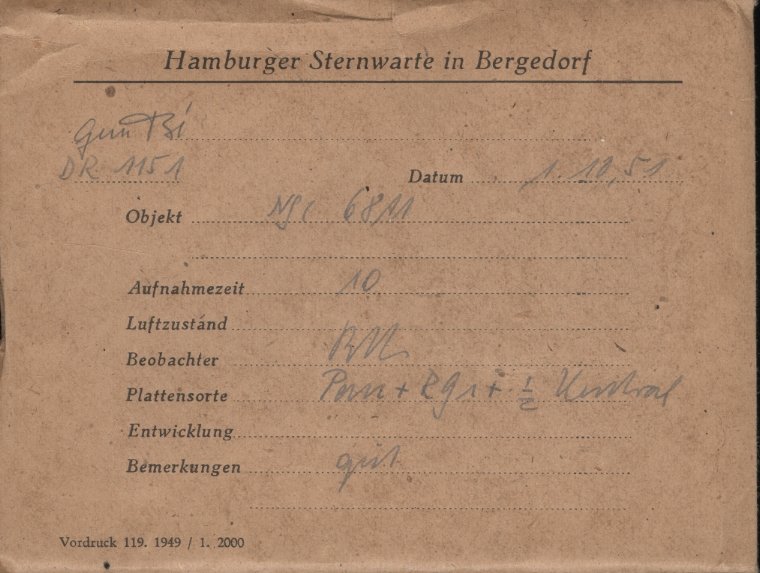 Hamburger Sternwarte in Bergedorf
DR 1151
Datum 1.10,51
Objekt NGC 6811
Aufnahmezeit 10
Luftzustand
Beobachter
Plattensorte Pan + RG1 + 1/2 Neutral
Entwicklung
Bemerkungen gut
Vordruck 119. 1949 / 1. 2000